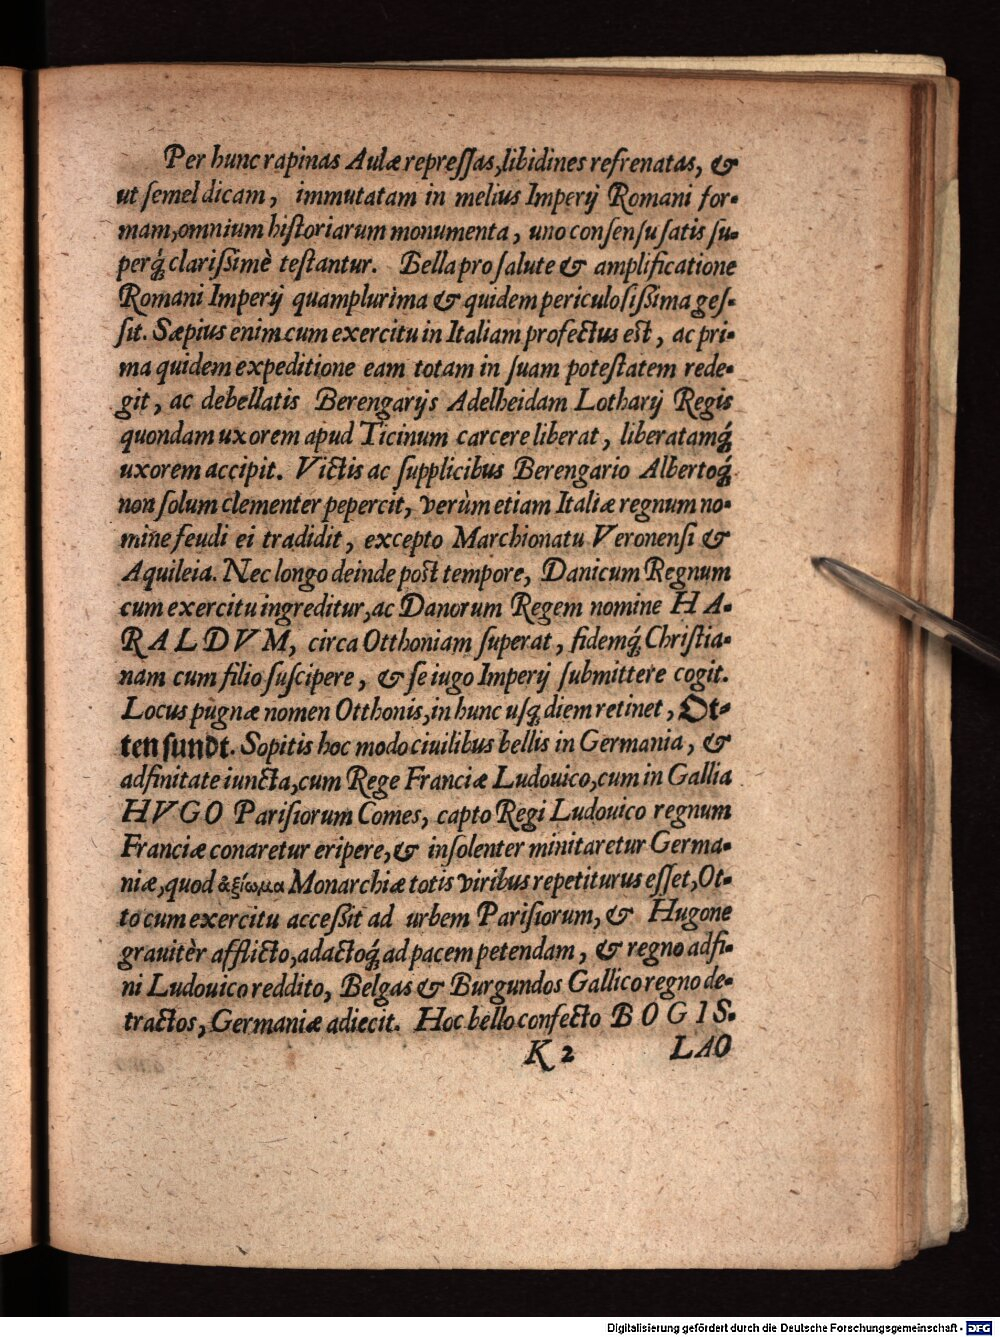 Per hunc rapinas Aulæ repreſſas, libidines refrenatas, &
ut ſemel dicam, immutatam in melius Imperij Romani for-
mam, omnium hiſtoriarum monumenta, uno conſenſu ſatis ſu-
perq́; clariſsimè teſtantur. Bella pro ſalute & amplificatione
Romani Imperij quamplurima & quidem periculoſiſsima geſ-
ſit. Sæpius enim cum exercitu in Italiam profectus est, ac pri-
ma quidem expeditione eam totam in ſuam poteſtatem rede-
git, ac debellatis Berengarijs Adelheidam Lotharij Regis
quondam uxorem apud Ticinum carcere liberat, liberatamq́;
uxorem accipit. Victis ac ſupplicibus Berengario Albertoq́;
non ſolum clementer pepercit, verùm etiam Italiæ regnum no-
mine feudi ei tradidit, excepto Marchionatu Veronenſi &
Aquileia. Nec longo deinde post tempore, Danicum Regnum
cum exercitu ingreditur, ac Danorum Regem nomine HA-
RALDVM, circa Otthoniam ſuperat, fidemq́; Chriſtia-
nam cum filio ſuſcipere, & ſe iugo Imperij ſubmittere cogit.
Locus pugnæ nomen Otthonis, in hunc uſq; diem retinet, Ot-
tenſundt. Sopitis hoc modo ciuilibus bellis in Germania, &
adfinitate iuncta, cum Rege Franciæ Ludouico, cum in Gallia
HVGO Pariſiorum Comes, capto Regi Ludouico regnum
Franciæ conaretur eripere, & inſolenter minitaretur Germa-
niæ, quod ἀξίωμα Monarchiæ totis viribus repetiturus eſſet, Ot-
to cum exercitu acceſsit ad urbem Pariſiorum, & Hugone
grauitèr afflicto, adactoq́; ad pacem petendam, & regno adfi-
ni Ludouico reddito, Belgas & Burgundos Gallico regno de-
tractos, Germaniæ adiecit. Hoc bello confecto BOGIS-
K 2 LAO
Digitalisierung gefördert durch die Deutsche Forschungsgemeinschaft - DFG